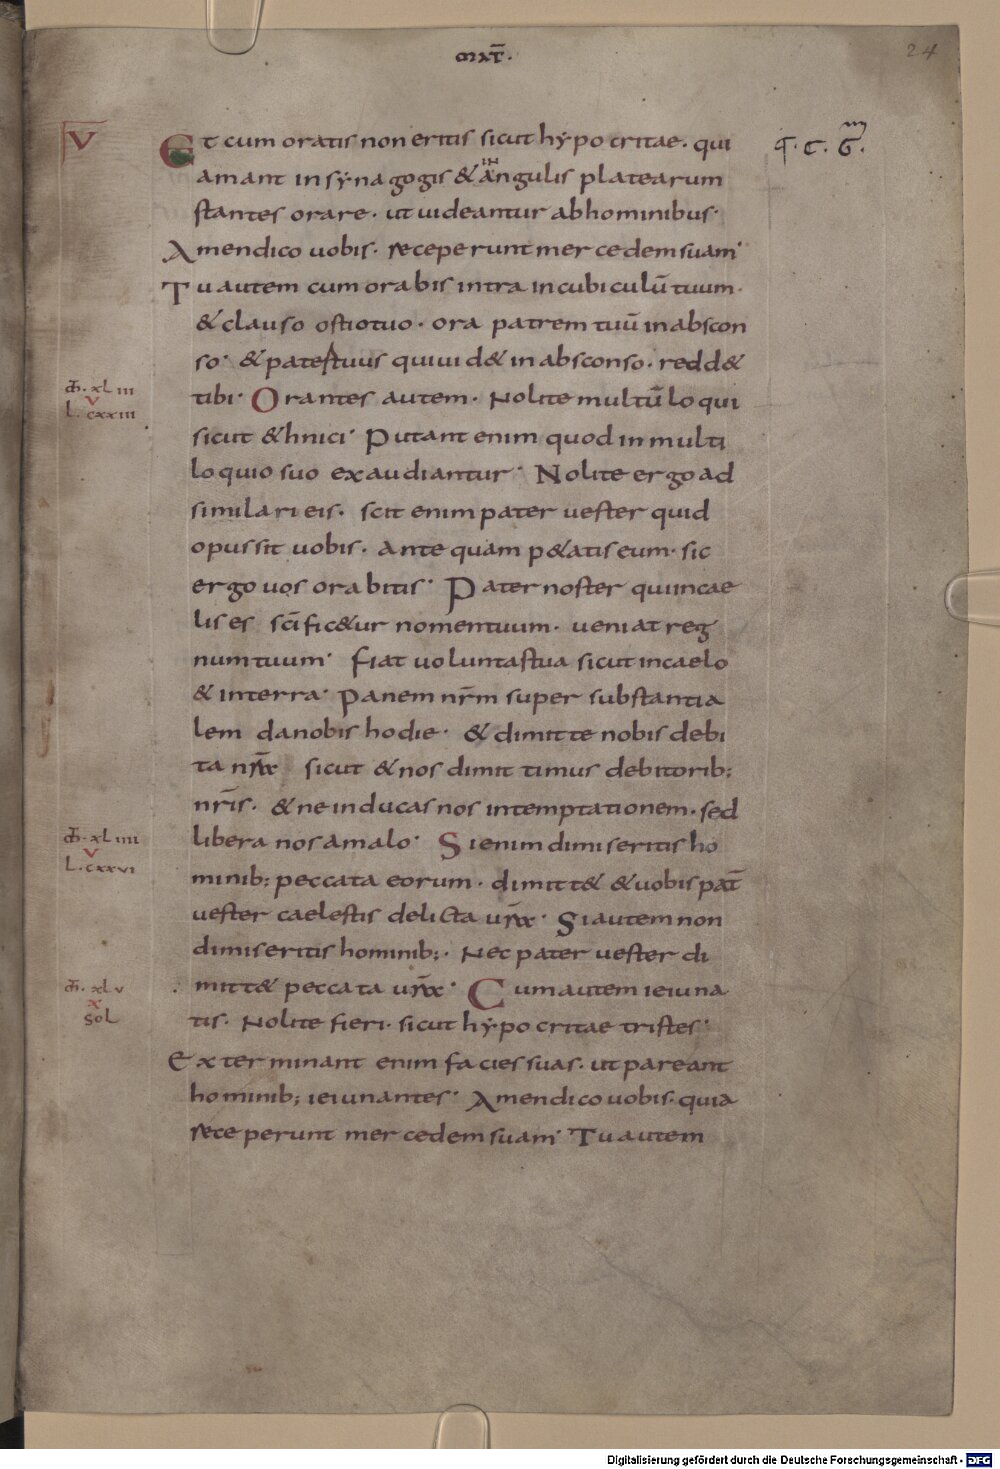 mat̅.
24
V
Et cum oratis non eritis sicut hypocritae. qui
q. c. G̅.
amant in synagogis & in angulis platearum
stantes orare. ut uideantur ab hominibus.
Amen dico uobis. receperunt mercedem suam.
Tu autem cum orabis intra in cubiculū tuum.
& clauso ostio tuo. ora patrem tuū in abscon
so. & pater tuus qui uid& in absconso. redd&
m̅. xLiii
tibi. Orantes autem. Nolite multū loqui
v
L. cxxiii
sicut &hnici. Putant enim quod in multi
loquio suo exaudiantur. Nolite ergo ad
similari eis. scit enim pater uester quid
opus sit uobis. ante quam p&atis eum. sic
ergo uos orabitis. Pater noster qui in cae
lis es sc̄ific&ur nomen tuum. ueniat reg
num tuum. Fiat uoluntas tua sicut in caelo
& in terra. Panem nr̄m super substantia
lem da nobis hodie. & dimitte nobis debi
ta nr̄a sicut & nos dimittimus debitorib;
nr̄is. & ne inducas nos in temptationem. sed
m̅. xLiiii
libera nos a malo. Si enim dimiseritis ho
v
L. cxxvi
minib; peccata eorum. dimitt& & uobis pat̄
uester caelestis delicta ur̄a. Si autem non
dimiseritis hominib;. Nec pater uester di
m̅. xLv
mitt& peccata ur̄a. Cum autem ieiuna
x
soL
tis. Nolite fieri. sicut hypocritae tristes.
Exterminant enim facies suas. ut pareant
hominib; ieiunantes. Amen dico uobis. quia
receperunt mercedem suam. Tu autem
Digitalisierung gefördert durch die Deutsche Forschungsgemeinschaft - DFG